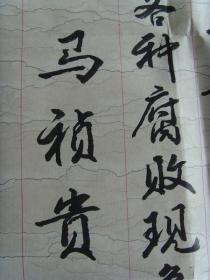 各种腐败现
马祯贵